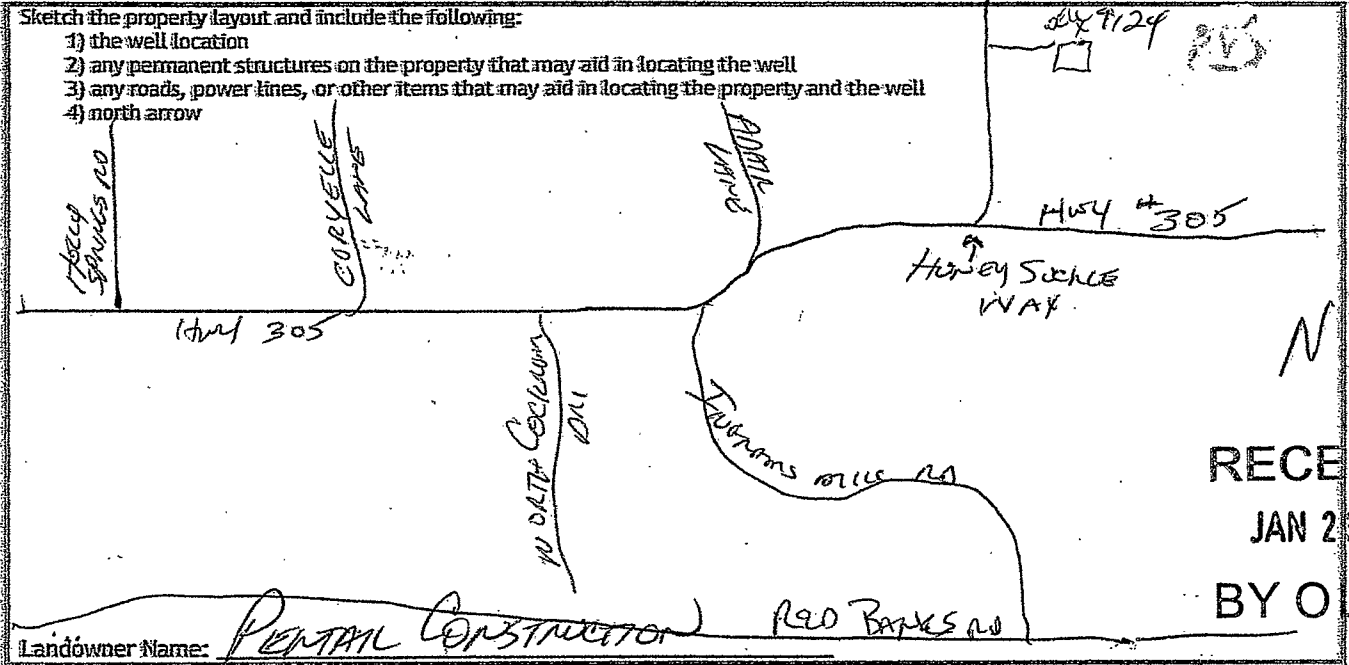 Sketch the property layout and include the following:
1) the well location
2) any permanent structures on the property that may aid in locating the well
3) any roads, power lines, or other items that may aid in locating the property and the well
4) north arrow
9124
HOLLY
SPRINGS RD
CORYELLE
LANE
LANE
HWY # 305
HONEY SUCKLE
WAY
HWY 305
N
NORTH
INGRAMS MILL RD
RECE
JAN 2
BY O
RED BANKS RD
Landowner Name: PENTAIL CONSTRUCTION